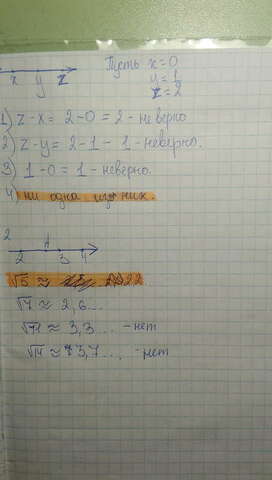 Пусть x=0
y=1
z=2
x y z
1) z-x= 2-0=2 - неверно
2) z-y= 2-1-1-неверно.
3) 1-0=1-неверно.
4) ни одна из них.
2
A
2 3 4
√5 ≈ 2,2
√7 ≈ 2,6...
√11 ≈ 3,3... -нет
√14 ≈ 3,7..., -нет